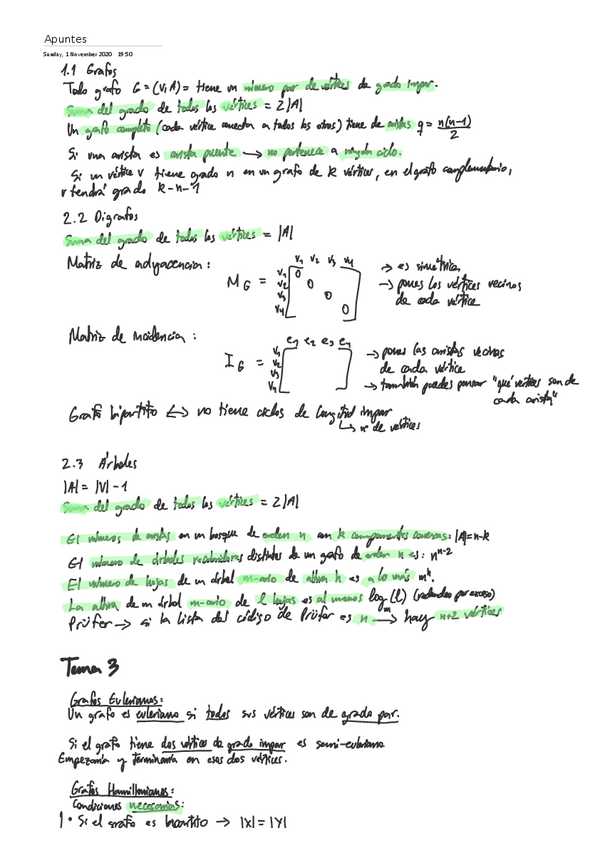 Apuntes
Sunday, 1 November 2020 19:50
1.1 Grafos
Todo grafo G = (V,A) = tiene un número par de vértices de grado impar.
Suma del grado de todos los vértices = 2|A|
Un grafo completo (cada vértice conecta a todos los otros) tiene de aristas q = n(n-1)/2
Si una arista es arista puente → no pertenece a ningún ciclo.
Si un vértice v tiene grado n en un grafo de k vértices, en el grafo complementario,
v tendrá grado k-n-1
2.2 Digrafos
Suma del grado de todos los vértices = |A|
Matriz de adyacencia:
v1 v2 v3 v4
M G =
v1 0
v2 0
v3 0
v4 0
→ es simétrica
→ pones los vértices vecinos
de cada vértice
Matriz de incidencia:
e1 e2 e3 e4
I G =
v1
v2
v3
v4
→ pones las aristas vecinas
de cada vértice
→ también puedes pensar "qué vértices son de
cada arista"
Grafo bipartito ↔ no tiene ciclos de longitud impar
↳ nº de vértices
2.3 Árboles
|A| = |V| - 1
Suma del grado de todos los vértices = 2|A|
El número de aristas en un bosque de orden n con k componentes conexas: |A|=n-k
El número de árboles recubridores distintos de un grafo de orden n es: n^n-2
El número de hojas de un árbol m-ario de altura h es a lo más m^h.
La altura de un árbol m-ario de l hojas es al menos log m (l) (redondeo por exceso)
Prüfer → si la lista del código de Prüfer es n → hay n+2 vértices
Tema 3
Grafos Eulerianos:
Un grafo es euleriano si todos sus vértices son de grado par.
Si el grafo tiene dos vértices de grado impar es semi-euleriano
Empezaría y terminaría en esos dos vértices.
Grafos Hamiltonianos:
Condiciones necesarias:
• Si el grafo es → |X| = |Y|